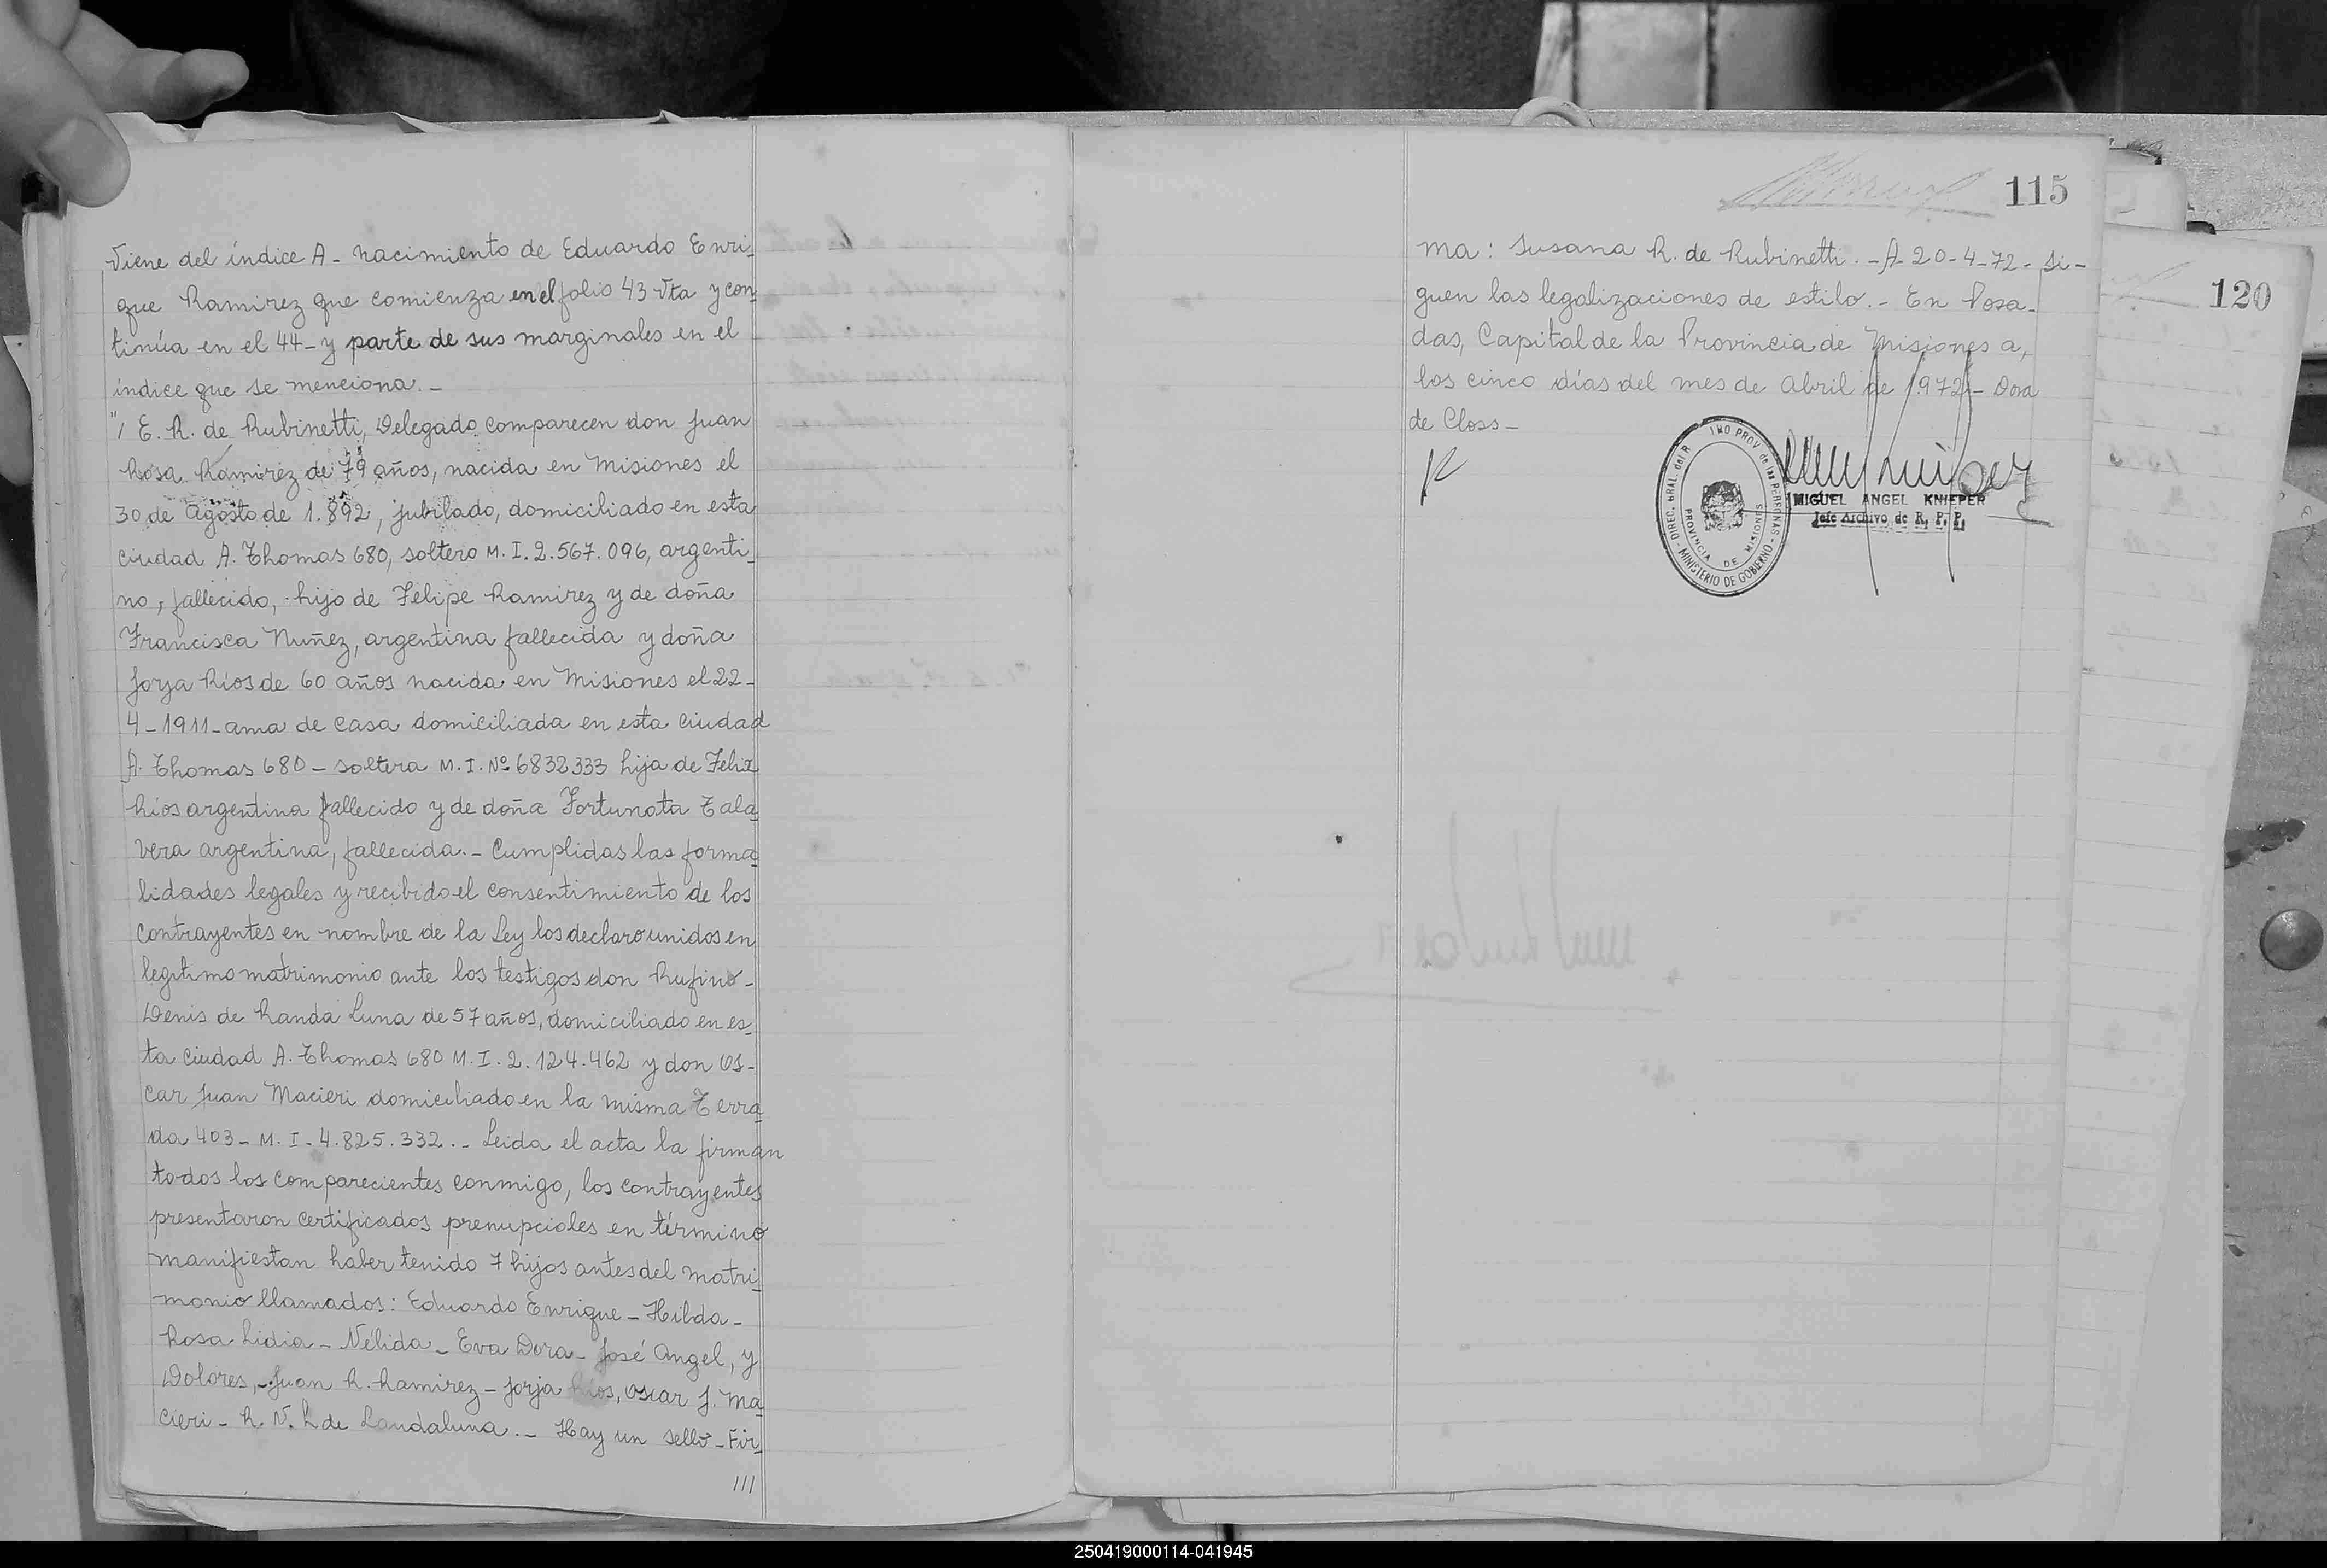 Viene del índice A- nacimiento de Eduardo Enri-
que Ramirez que comienza en el folio 43 vta y con-
tinúa en el 44- y parte de sus marginales en el
índice que se menciona.-
"/ E. R. de Rubinetti, Delegado comparecen don Juan
Rosa Ramirez de 79 años, nacida en Misiones el
30 de Agosto de 1.892, jubilado, domiciliado en esta
ciudad A. Thomas 680, soltero M. I. 2.567.096, argenti-
no, fallecido, hijo de Felipe Ramirez y de doña
Francisca Nuñez, argentina fallecida y doña
Jorja Ríos de 60 años nacida en Misiones el 22-
4-1911-ama de casa domiciliada en esta ciudad
A. Thomas 680- soltera M. I. Nº 6832333 hija de Felix
Ríos argentina fallecido y de doña Fortunata Tala-
vera argentina, fallecida.- Cumplidas las forma-
lidades legales y recibido el consentimiento de los
contrayentes en nombre de la Ley los declaro unidos en
legitimo matrimonio ante los testigos don Rufino-
Denis de Randa Luna de 57 años, domiciliado en es-
ta ciudad A. Thomas 680 M. I. 2.124.462 y don Os-
car Juan Macieri domiciliado en la misma Terra-
da 403- M. I- 4.825.332.- Leida el acta la firman
todos los comparecientes conmigo, los contrayentes
presentaron certificados prenupciales en término
manifiestan haber tenido 7 hijos antes del matri-
monio llamados: Eduardo Enrique- Hilda-
Rosa Lidia- Nélida- Eva Dora- José Angel, y
Dolores,- Juan R. Ramirez- Jorja Ríos, Oscar J. Ma-
cieri- R. N. L de Landaluna.- Hay un sello- Fir-
///
115
ma: Susana R. de Rubinetti.- A- 20-4-72- Si-
guen las legalizaciones de estilo.- En Posa-
das, Capital de la Provincia de Misiones a,
los cinco días del mes de Abril de 1.972- Dora
de Closs-
DIREC. GRAL. del R PROV. de las PERSONAS - MINISTERIO DE GOBIERNO -
PROVINCIA DE MISIONES
MIGUEL ANGEL KNIEPER
Jefe Archivo de R. P. P.
120
250419000114-041945